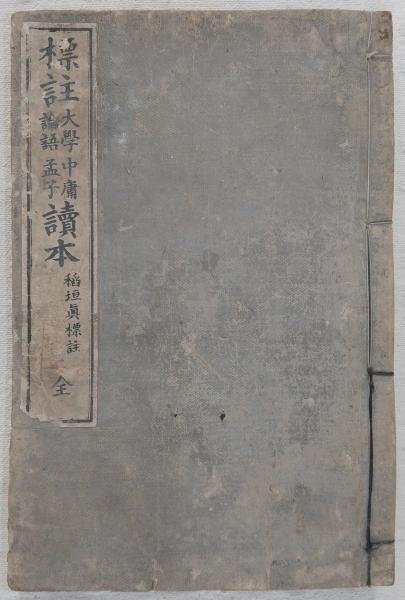 標註大學中庸論語孟子讀本
稻垣眞標註
全